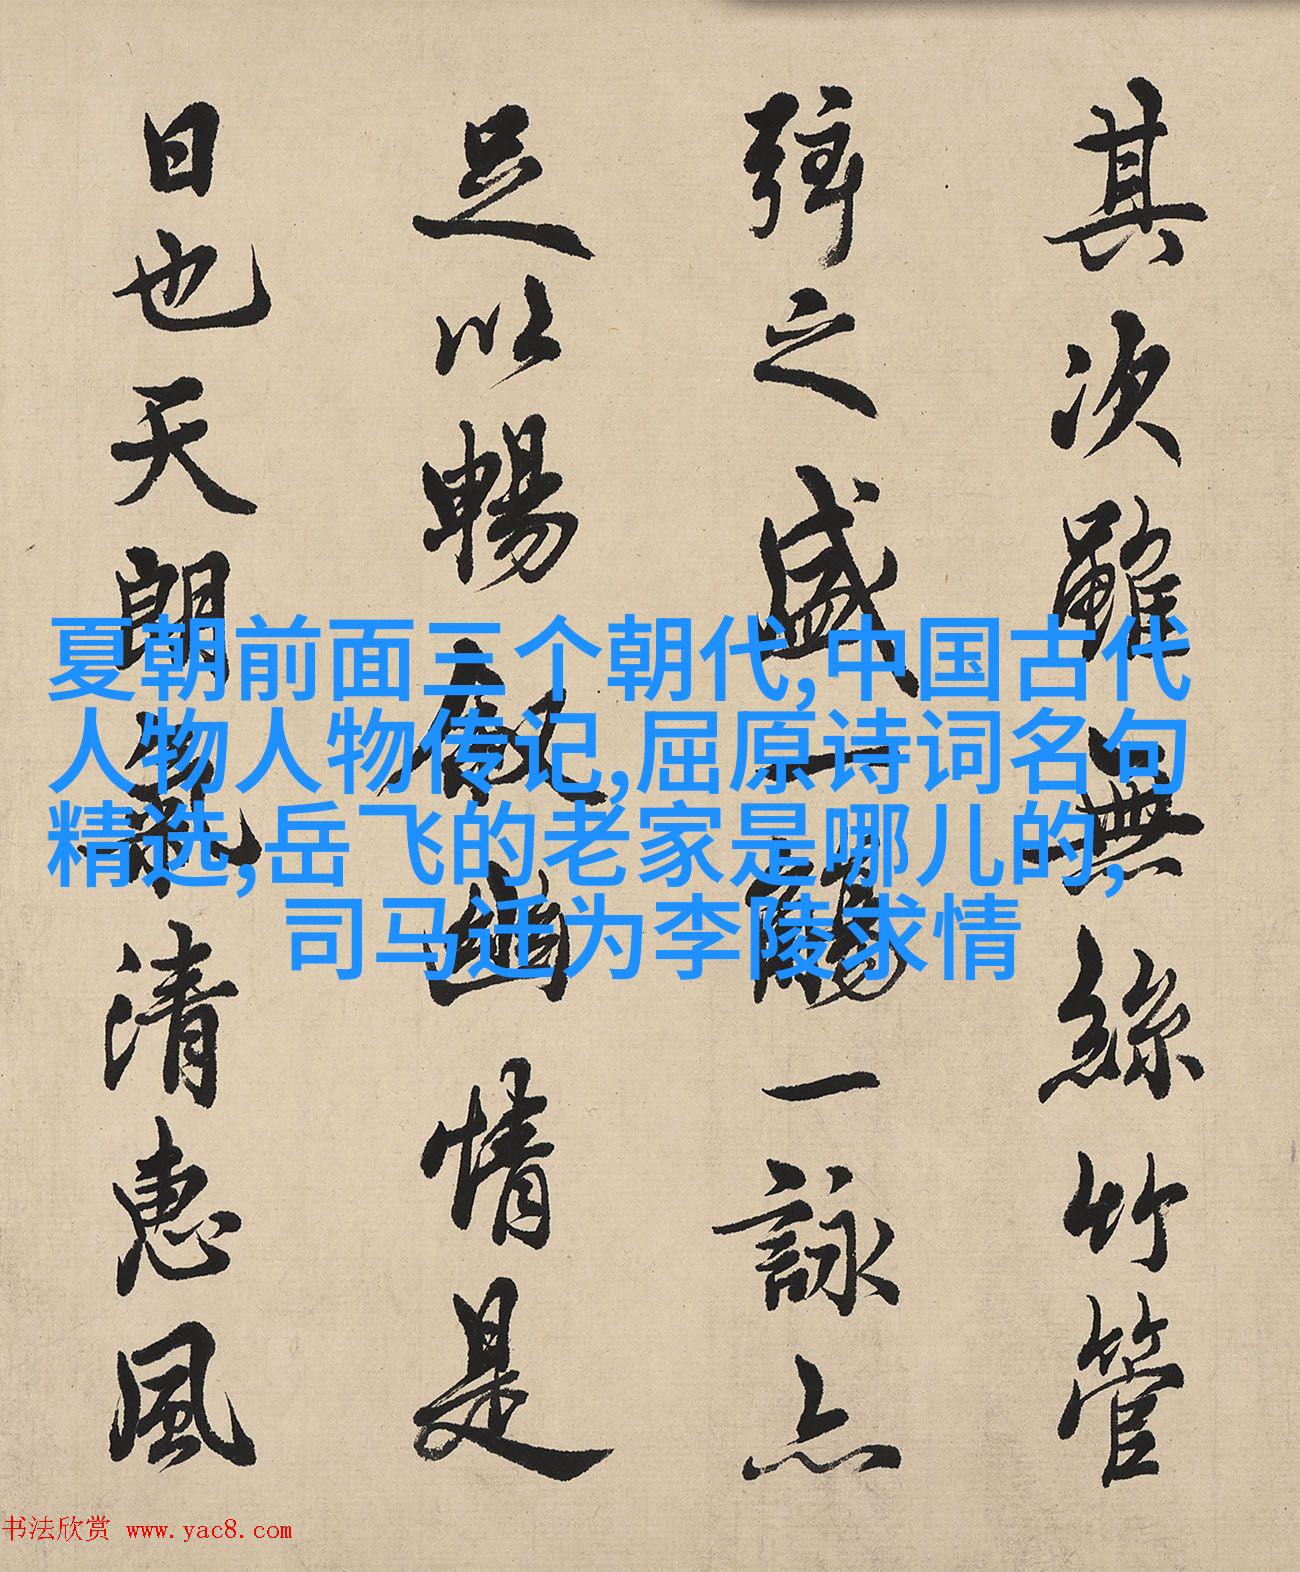 其次雖無絲竹管
弦之盛一觴一詠亦
足以暢叙幽情是
日也天朗氣清惠風
夏朝前面三个朝代,中国古代
人物人物传记,屈原诗词名句
精选,岳飞的老家是哪儿的,
司马迁为李陵求情
书法欣赏 www.yac8.com